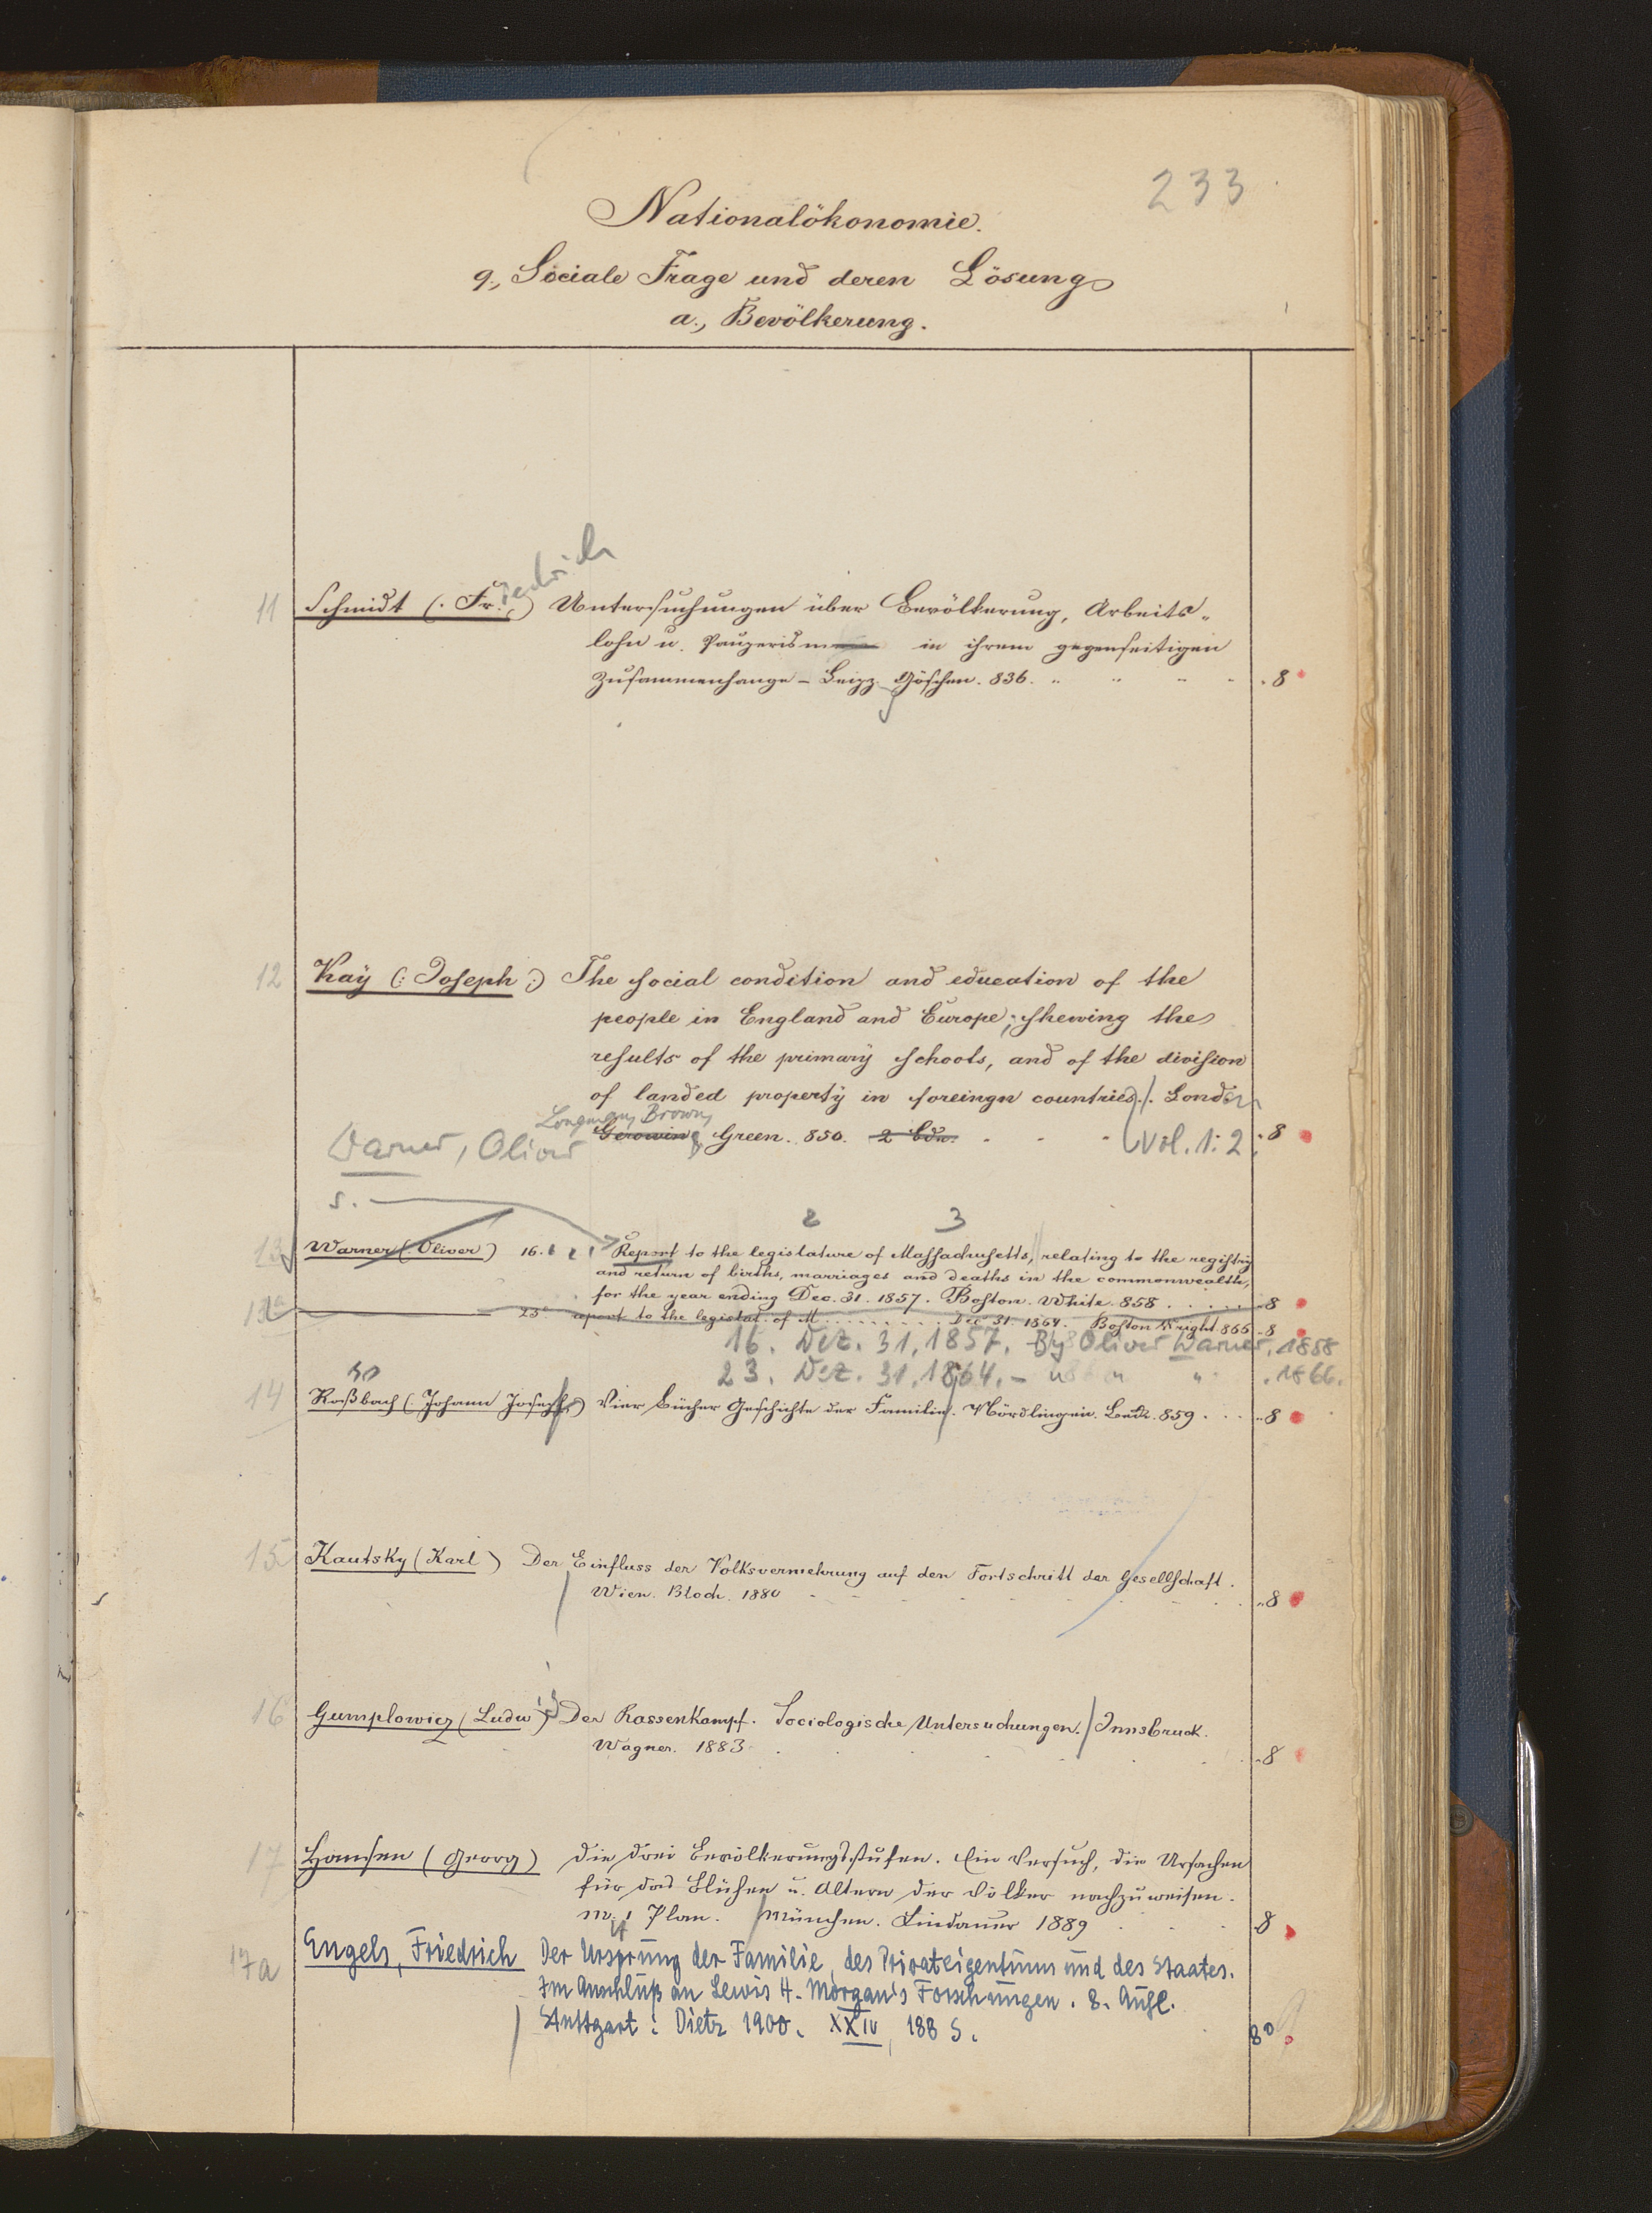 233
Nationalökonomie.
9., Sociale Frage und deren Lösung
a., Bevölkerung.
11 Schmidt (. Fr.iedrich) Untersuchungen über Bevölkerung, Arbeits„
lohn u. Pauperism in ihrem gegenseitigen
Zusammenhange – Leipz. Göschen. 836. " " " " . 8
12 Kaÿ (: Joseph :) The social condition and education of the
people in England and Europe; shewing the
results of the primarÿ schools, and of the division
of landed propertÿ in foreingn countries. /. London
Longman, Brown,
Gerowin & Green. 850. 2 Bde. Vol. 1: 2 . 8
Warner, Oliver
s.
2 3
13 Warner (. Oliver) 16. Report to the legislature of Massachusetts, relating to the registrÿ
and return of births, marriages and deaths in the commonwealth,
for the year ending Dec. 31. 1857. Boston. White. 858 . . . . . 8
13a 23 report to the legislat. of M . . . . . . . . . . Dec 31. 1864. Boston Wright 866 . 8
16. Dez. 31, 1857. By Oliver Warner. 1858
23. Dez. 31, 1864. – " " " . 1866.
14 Roßbach (. Johann Joseph.) Vier Bücher Geschichte der Familie. Nördlingen. Beck. 859 . . . . 8
15 Kautsky (Karl) Der Einfluss der Volksvermehrung auf den Fortschritt der Gesellschaft.
Wien. Bloch. 1880 . . . . „ 8
16 Gumplowicz (Ludwig) Der Rassenkampf. Sociologische Untersuchungen. / Innsbruck.
Wagner. 1883 . . . . „ 8
17 Hansen (Georg) Die drei Bevölkerungsstufen. Ein Versuch, die Ursachen
für das Blühen u. Altern der Völker nachzuweisen.
M. 1 Plan. München. Lindauer 1889 . . . 8
17a Engels, Friedrich Der Ursprung der Familie, des Privateigentums und des Staates.
Im Anschluß an Lewis H. Morgan's Forschungen. 8. Aufl.
Stuttgart: Dietz 1900. XXIV, 188 S. 8°